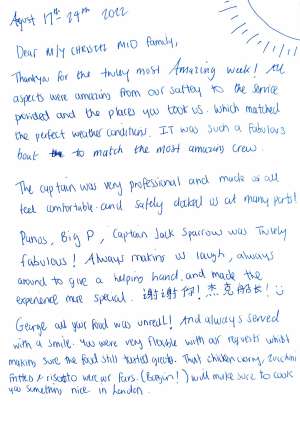 August 17th - 24th 2022
Dear M/Y CHRISTEL MIO family,
Thankyou for the truley most Amazing week! All
aspects were amazing from our saftey to the service
provided and the places you took us. Which matched
the perfect weather conditions. It was such a fabulous
boat to match the most amazing crew.
The captain was very professional and made us all
feel comfortable and safely docked us at many ports!
Panos, Big P, Captain Jack Sparrow was Truely
fabulous! Always making us laugh, always
around to give a helping hand, and made the
experience more special. 谢谢你! 杰克船长!
George all your food was unreal! And always served
with a smile. You were very flexible with our requests whilst
making sure the food still tasted great. That chicken curry, zucchini
fritters & risotto were our favs. (Bargin!) will make sure to cook
you something nice in London.